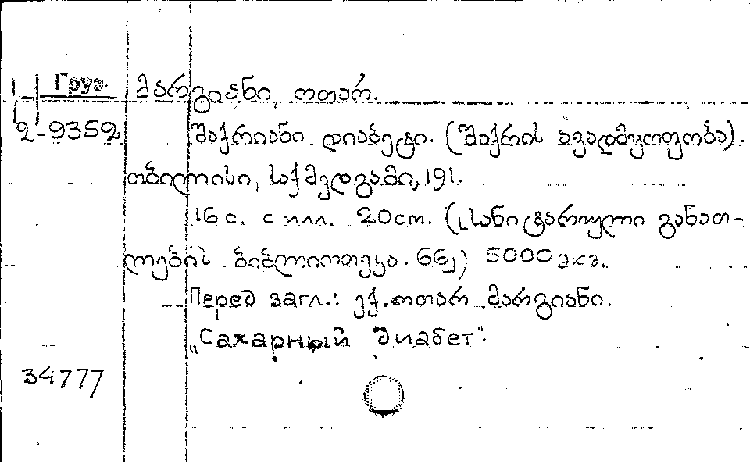 Груз. მარგიანი, ოთარ.
2-9352 შაქრიანი დიაბეტი. (შაქრის ავადმყოფობა).
თბილისი, საქმედგამი, 191.
16 с. с илл. 20cm. (სანიტარული განათ-
ლების ბიბლიოთეკა. 66) 5000 экз.
Перед загл.: ექ. ოთარ მარგიანი.
„Сахарный диабет".
34777